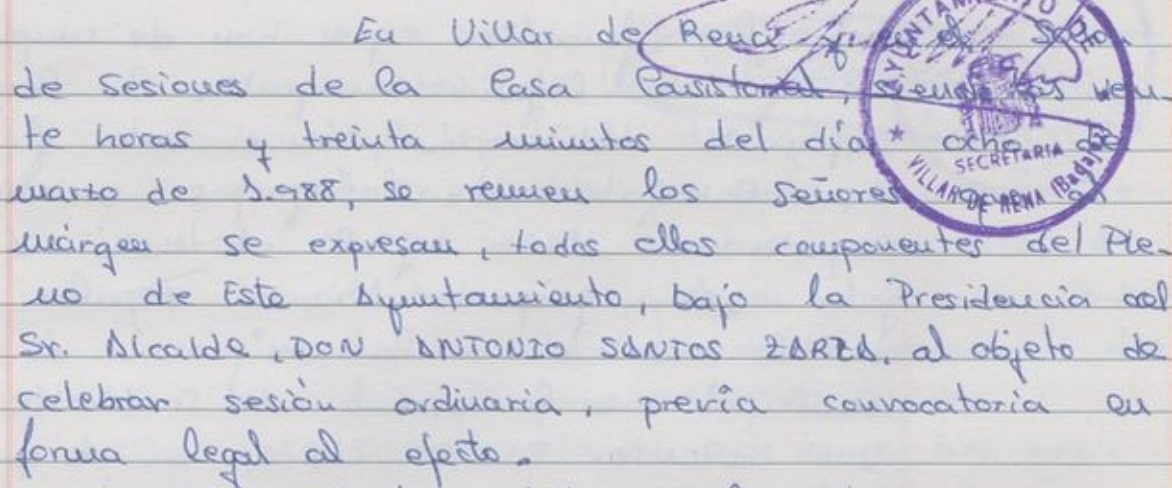 En Villar de Rena y en el Salón
de sesiones de la Casa Consistorial, siendo las vein-
te horas y treinta minutos del día ocho de
marzo de 1.988, se reunen los señores que al
márgen se expresan, todos ellos componentes del Ple-
no de Este Ayuntamiento, bajo la Presidencia del
Sr. Alcalde, DON ANTONIO SANTOS ZARZA, al objeto de
celebrar sesión ordinaria, previa convocatoria en
forma legal al efecto.
AYUNTAMIENTO DE
VILLAR DE RENA (Badajoz)
SECRETARIA